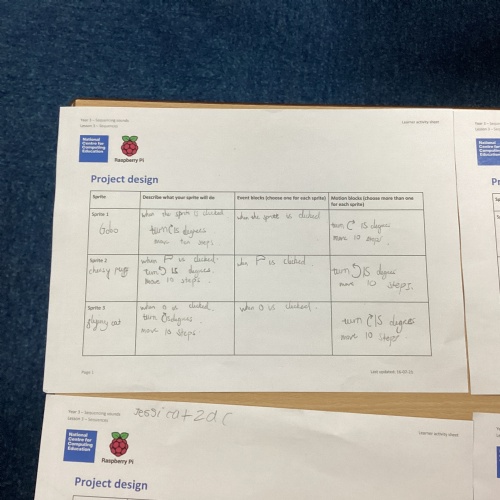 Year 3 – Sequencing sounds
Lesson 3 – Sequences
Learner activity sheet
National
Centre for
Computing
Education
Raspberry Pi
Project design
Sprite
Describe what your sprite will do
Event blocks (choose one for each sprite)
Motion blocks (choose more than one
for each sprite)
Sprite 1
Gobo
when the sprite is clicked
turn 15 degrees
move ten steps
when the sprite is clicked
turn 15 degrees
move 10 steps.
Sprite 2
cheesy puff
when is clicked.
turn 15 degrees.
move 10 steps.
when is clicked.
turn 15 degrees
move 10 steps.
Sprite 3
flying cat
when is clicked.
turn degrees
move 10 steps.
when is clicked.
turn 15 degrees
move 10 steps
Page 1
Last updated: 16-07-21
Year 3 – Sequencing sounds
Lesson 3 – Sequences
Learner activity sheet
National
Centre for
Computing
Education
Raspberry Pi
Project design